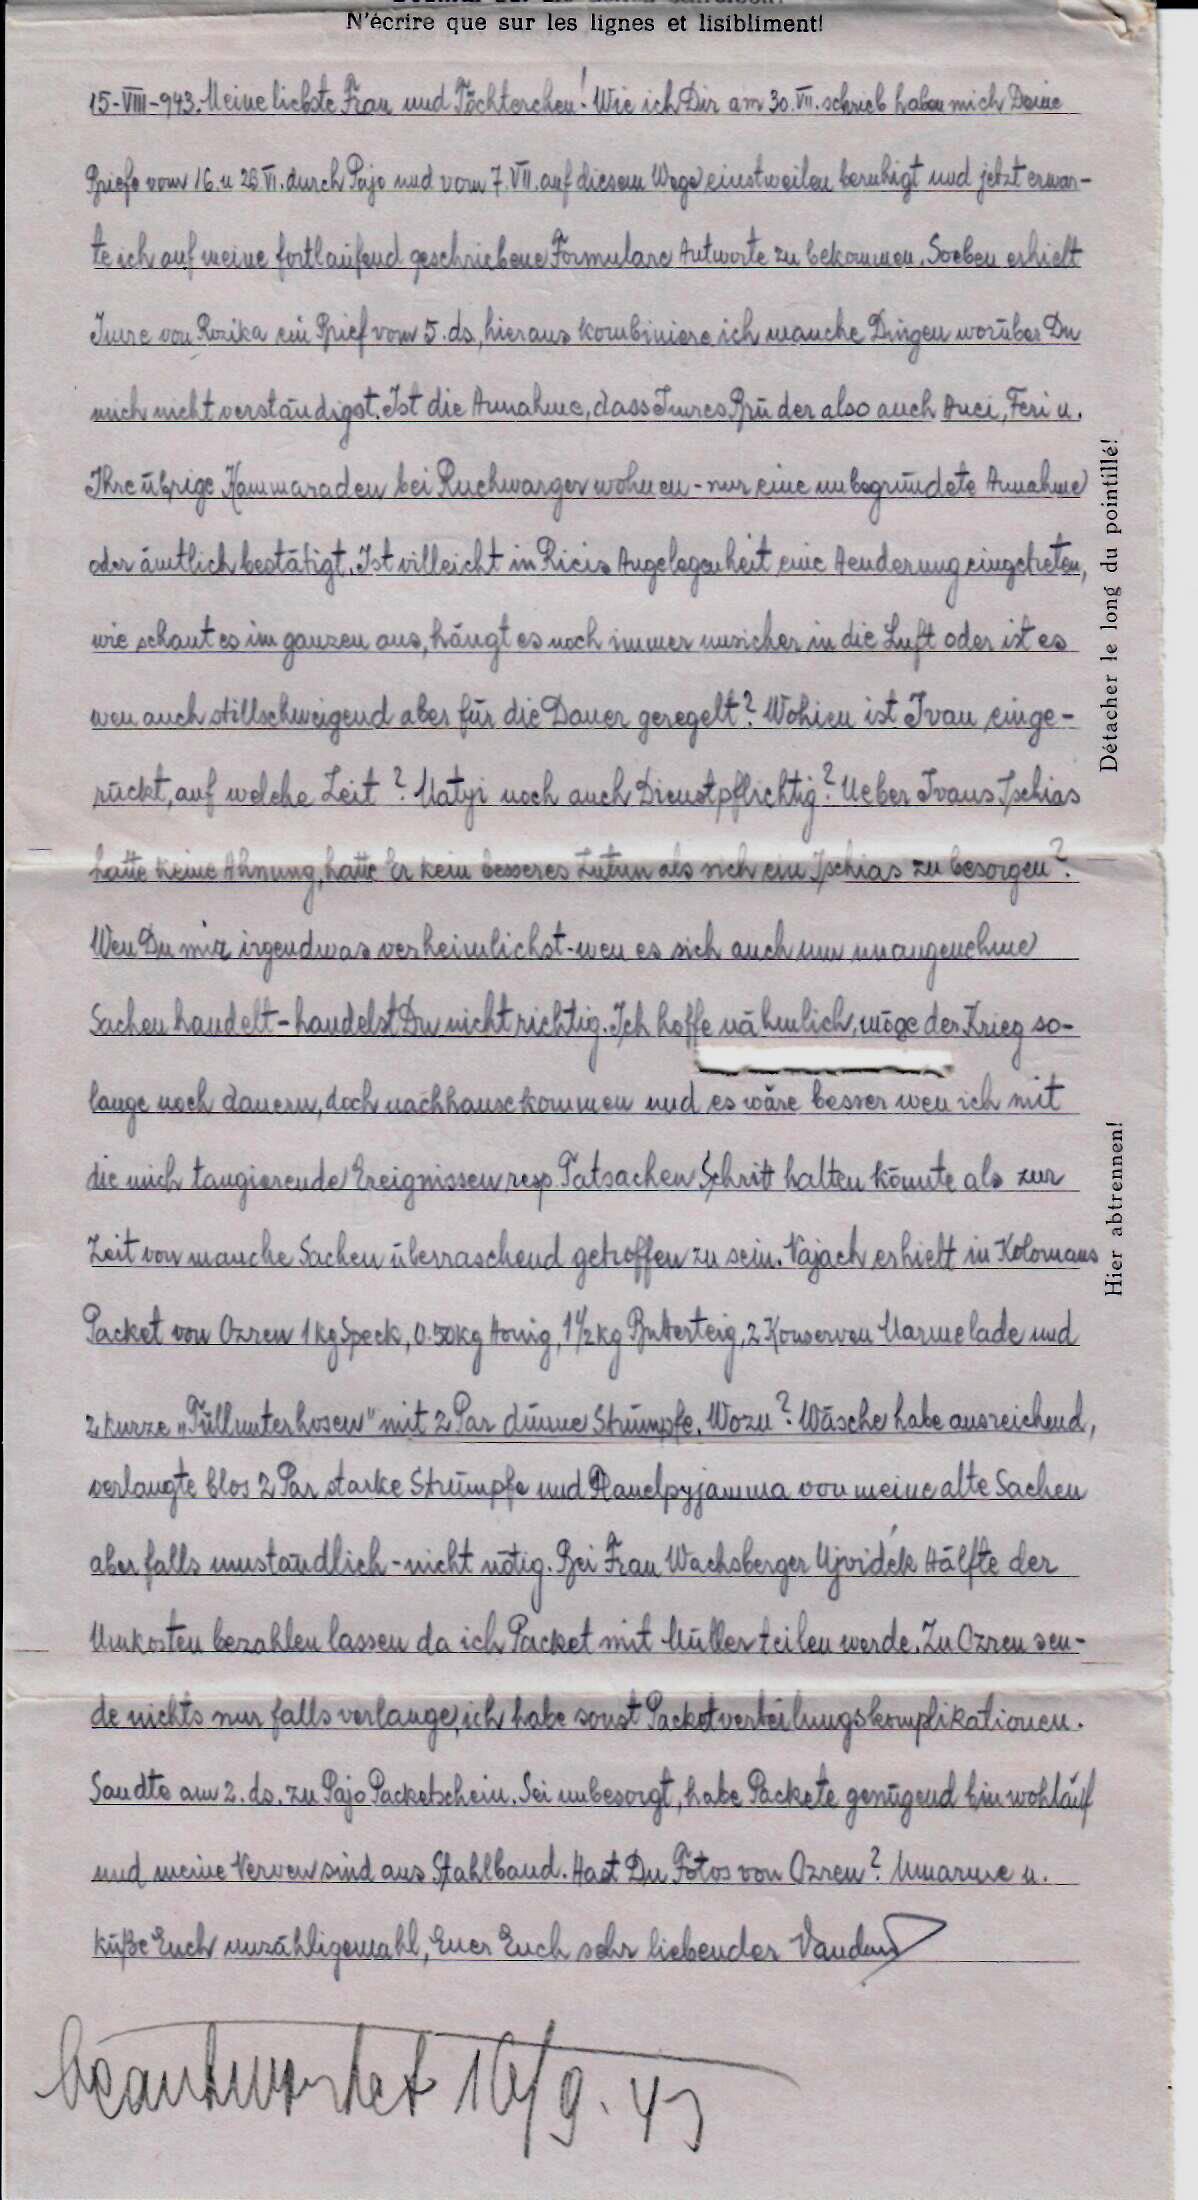 N'écrire que sur les lignes et lisibliment!
15-VIII-943. Meine liebste Frau und Töchterchen! Wie ich Dir am 30.VII. schrieb haben mich Deine
Briefe vom 16. u 26.VI. durch Pajo und vom 7.VII. auf diesem Wege einstweilen beruhigt und jetzt erwar-
te ich auf meine fortlaufend geschriebene Formulare Antworte zu bekommen. Soeben erhielt
Imre von Rozika ein Brief vom 5. ds, hieraus kombiniere ich manche Dingen worüber Du
mich nicht verständigst. Ist die Annahme, dass Imres Brüder also auch Anci, Feri u.
Ihre übrige Kammaraden bei Ruchwarger wohnen - nur eine unbegründete Annahme
oder ämtlich bestätigt. Ist villeicht in Ricis Angelegenheit eine Aenderung eingetreten,
wie schaut es im ganzen aus, hängt es noch immer unsicher in die Luft oder ist es
wen auch stillschweigend aber für die Dauer geregelt? Wohien ist Ivan einge-
rückt, auf welche Zeit? Matyi noch auch Dienstpflichtig? Ueber Ivans Ischias
hatte keine Ahnung, hatte Er kein besseres Zutun als sich ein Ischias zu besorgen?
Wen Du mir irgendwas verheimlichst - wen es sich auch um unangenehme
Sachen handelt - handelst Du nicht richtig. Ich hoffe nähmlich, möge der Krieg so-
lange noch dauern, doch nachhause kommen und es wäre besser wen ich mit
die mich tangierende Ereignissen resp. Tatsachen Schritt halten könnte als zur
Zeit von manche Sachen überraschend getroffen zu sein. Vajach erhielt in Kolomans
Packet von Ozren 1kg Speck, 0.50kg Honig, 1½kg Butterteig, 2 Konserven Marmelade und
2 kurze „Tüllunterhosen" mit 2 Par dünne Strümpfe. Wozu? Wäsche habe ausreichend,
verlangte blos 2 Par starke Strümpfe und Flanelpyjamma von meine alte Sachen
aber falls umständlich - nicht nötig. Bei Frau Wachsberger Ujvidék Hälfte der
Unkosten bezahlen lassen da ich Packet mit Müller teilen werde. Zu Ozren sen-
de nichts nur falls verlange, ich habe sonst Packetverteilungskomplikationen.
Sandte am 2. ds. zu Pajo Packetschein. Sei unbesorgt, habe Packete genügend bin wohlauf
und meine Nerven sind aus Stahlband. Hast Du Fotos von Ozren? Umarme u.
küße Euch unzähligemahl, Euer Euch sehr liebender
beantwortet 16/9. 43
Détacher le long du pointillé!
Hier abtrennen!